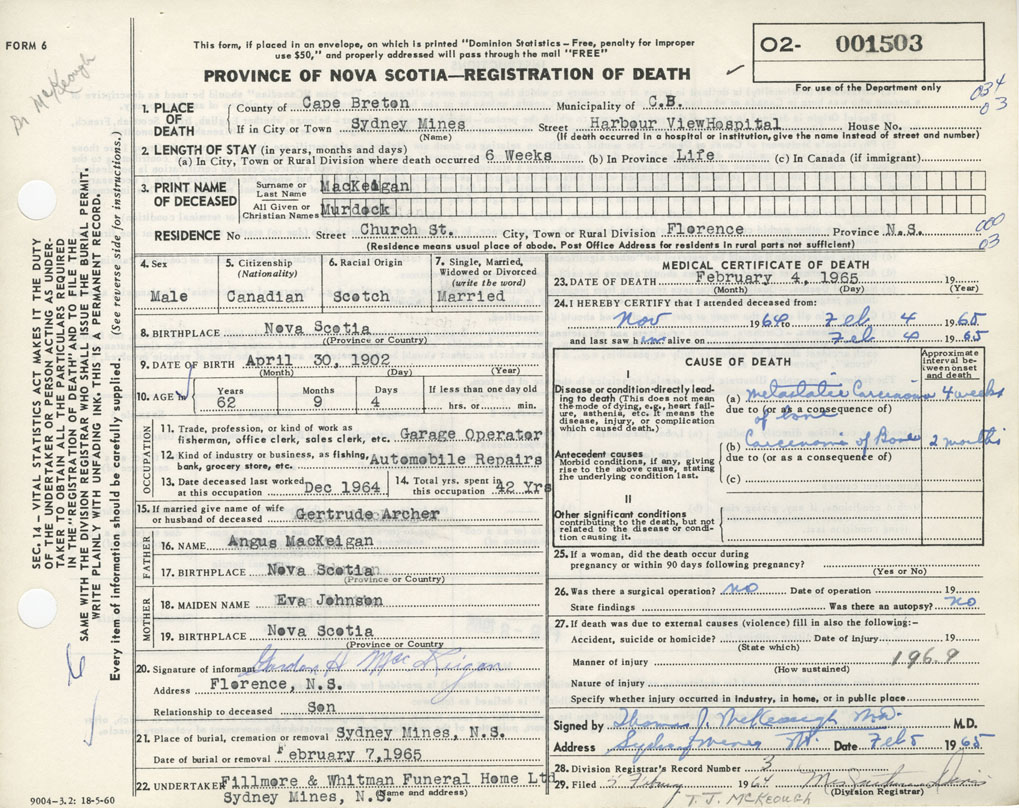 FORM 6
Dr McKeough
This form, if placed in an envelope, on which is printed "Dominion Statistics – Free, penalty for improper
use $50," and properly addressed will pass through the mail "FREE"
PROVINCE OF NOVA SCOTIA—REGISTRATION OF DEATH
02- 001503
For use of the Department only
034
03
1. PLACE OF DEATH County of Cape Breton Municipality of C.B.
If in City or Town Sydney Mines Street Harbour ViewHospital House No.
(Name) (If death occurred in a hospital or institution, give the name instead of street and number)
2. LENGTH OF STAY (in years, months and days)
(a) In City, Town or Rural Division where death occurred 6 Weeks (b) In Province Life (c) In Canada (if immigrant)
3. PRINT NAME OF DECEASED Surname or Last Name MacKeigan
All Given or Christian Names Murdock
000
03
RESIDENCE No Street Church St. City, Town or Rural Division Florence Province N.S.
(Residence means usual place of abode. Post Office Address for residents in rural parts not sufficient)
4. Sex Male
5. Citizenship (Nationality) Canadian
6. Racial Origin Scotch
7. Single, Married, Widowed or Divorced (write the word) Married
8. BIRTHPLACE Nova Scotia
(Province or Country)
9. DATE OF BIRTH April 30, 1902
(Month) (Day) (Year)
10. AGE Years 62 Months 9 Days 4 If less than one day old hrs. or min.
OCCUPATION
11. Trade, profession, or kind of work as
fisherman, office clerk, sales clerk, etc. Garage Operator
12. Kind of industry or business, as fishing,
bank, grocery store, etc. Automobile Repairs
13. Date deceased last worked at this occupation Dec 1964 14. Total yrs. spent in this occupation 42 Yrs
15. If married give name of wife
or husband of deceased Gertrude Archer
FATHER
16. NAME Angus MacKeigan
17. BIRTHPLACE Nova Scotia
(Province or Country)
MOTHER
18. MAIDEN NAME Eva Johnson
19. BIRTHPLACE Nova Scotia
(Province or Country)
20. Signature of informant Gordon H MacKeigan
Address Florence, N.S.
Relationship to deceased Son
21. Place of burial, cremation or removal Sydney Mines, N.S.
Date of burial or removal February 7,1965
22. UNDERTAKER Fillmore & Whitman Funeral Home Ltd
Sydney Mines, N.S. (Name and address)
MEDICAL CERTIFICATE OF DEATH
23. DATE OF DEATH February 4, 1965 19
(Month) (Day) (Year)
24. I HEREBY CERTIFY that I attended deceased from:
Nov 1964 to Feb 4 1965
and last saw him alive on Feb 4 1965
CAUSE OF DEATH
Approximate interval between onset and death
I
Disease or condition directly leading to death (This does not mean the mode of dying, e.g., heart failure, asthenia, etc. It means the disease, injury, or complication which caused death.)
(a) Metastatic Carcinoma 4 weeks
due to (or as a consequence of)
of bone
(b) Carcinoma of Bone 2 months
due to (or as a consequence of)
Antecedent causes
Morbid conditions, if any, giving rise to the above cause, stating the underlying condition last.
(c)
II
Other significant conditions
contributing to the death, but not related to the disease or condition causing it.
25. If a woman, did the death occur during
pregnancy or within 90 days following pregnancy?
(Yes or No)
26. Was there a surgical operation? no Date of operation 19
State findings Was there an autopsy? no
27. If death was due to external causes (violence) fill in also the following:–
Accident, suicide or homicide? Date of injury 19
(State which)
Manner of injury 1969
(How sustained)
Nature of injury
Specify whether injury occurred in industry, in home, or in public place
Signed by Thomas J. McKeough MD. M.D.
Address Sydney Mines NS. Date Feb 5 1965
28. Division Registrar's Record Number 3
29. Filed 5 February 1964
(Division Registrar)
T. J. MCKEOUGH
9004–3.2: 18-5-60
SEC. 14 – VITAL STATISTICS ACT MAKES IT THE DUTY
OF THE UNDERTAKER OR PERSON ACTING AS UNDER-
TAKER TO OBTAIN ALL THE PARTICULARS REQUIRED
IN THE "REGISTRATION OF DEATH" AND TO FILE THE
SAME WITH THE DIVISION REGISTRAR WHO SHALL ISSUE THE BURIAL PERMIT.
WRITE PLAINLY WITH UNFADING INK. THIS IS A PERMANENT RECORD.
Every item of information should be carefully supplied. (See reverse side for instructions.)